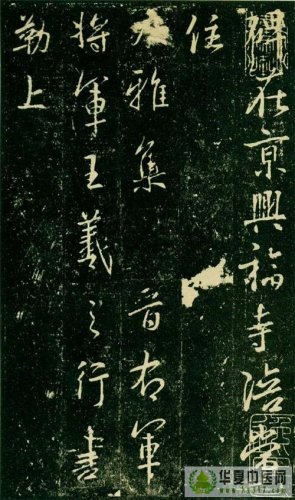 碑在京興福寺陪常
住
雅集 晉右軍
將軍王羲之行書
勒上
华夏中医网